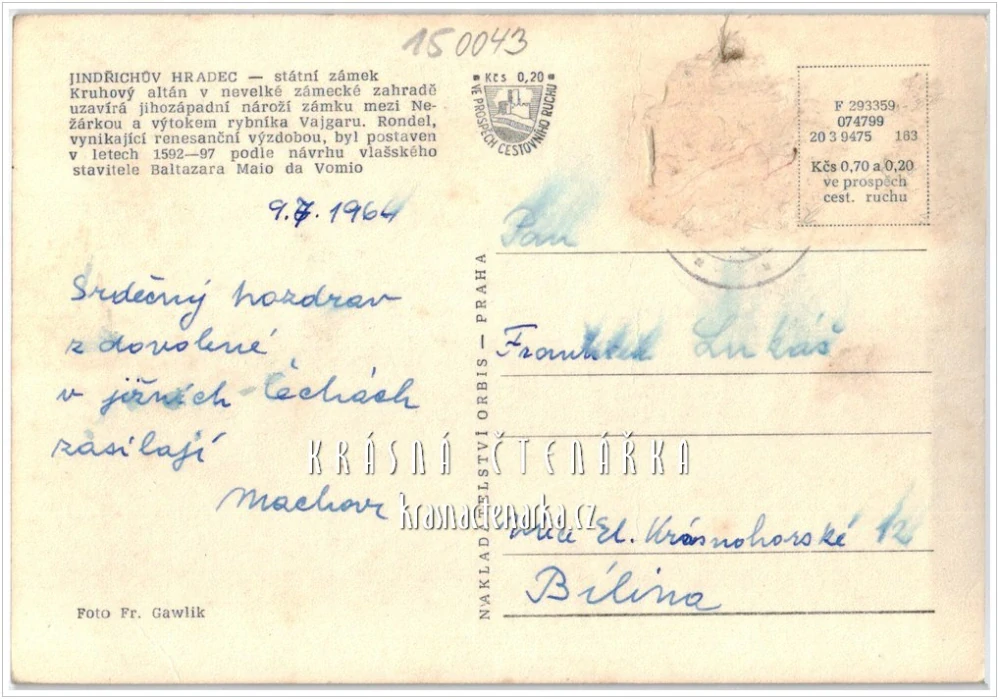 150043
JINDŘICHŮV HRADEC — státní zámek
Kruhový altán v nevelké zámecké zahradě
uzavírá jihozápadní nároží zámku mezi Ne-
žárkou a výtokem rybníka Vajgaru. Rondel,
vynikající renesanční výzdobou, byl postaven
v letech 1592—97 podle návrhu vlašského
stavitele Baltazara Maio da Vomio
Kčs 0,20
VE PROSPĚCH CESTOVNÍHO RUCHU
F 293359
074799
20 3 9475 163
Kčs 0,70 a 0,20
ve prospěch
cest. ruchu
9.7.1964
Srdečný pozdrav
z dovolené
v jižních Čechách
zasílají
NAKLADATELSTVÍ ORBIS — PRAHA
Pan
František Lukáš
ulice El. Krásnohorské 12
Bílina
KRÁSNÁ ČTENÁŘKA
krasnactenarka.cz
Foto Fr. Gawlik